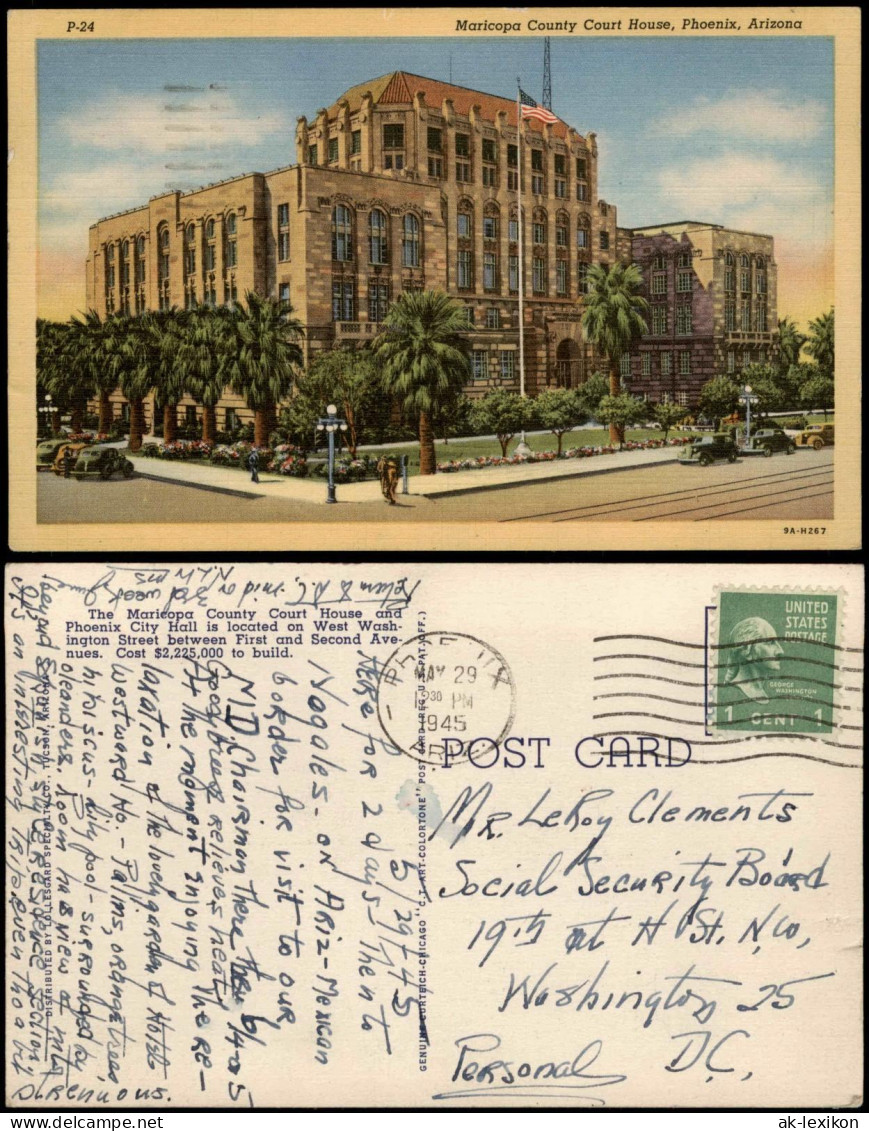 P-24
Maricopa County Court House, Phoenix, Arizona
9A-H267
The Maricopa County Court House and
Phoenix City Hall is located on West Wash-
ington Street between First and Second Ave-
nues. Cost $2,225,000 to build.
MAY 29
PM
1945
UNITED
STATES
POSTAGE
GEORGE
WASHINGTON
1 CENT 1
POST CARD
GENUINE CURTEICH-CHICAGO "C.T. ART-COLORTONE" POST CARD (REG. U.S. PAT. OFF.)
DISTRIBUTED BY LOLLESGARD SPECIALTY CO., TUCSON, ARIZONA
5/29/45
Here for 2 days then to
Nogales - on Ariz-Mexican
border for visit to our
N.D. Chairman there then 6/
Good breeze relieves heat.
At the moment enjoying the re-
laxation of the lovely garden of Hotel
Westward Ho. - Palms, orange trees
hibiscus - lily pool - surrounded by
oleanders. Room has view of mts
beyond Spanish style residence section,
It's an interesting trip even tho a bit
strenuous.
Return to D.C. mid or 3rd week June
Mr. LeRoy Clements
Social Security Board
19th at H St. N.W,
Washington 25
D.C,
Personal
ak-lexikon